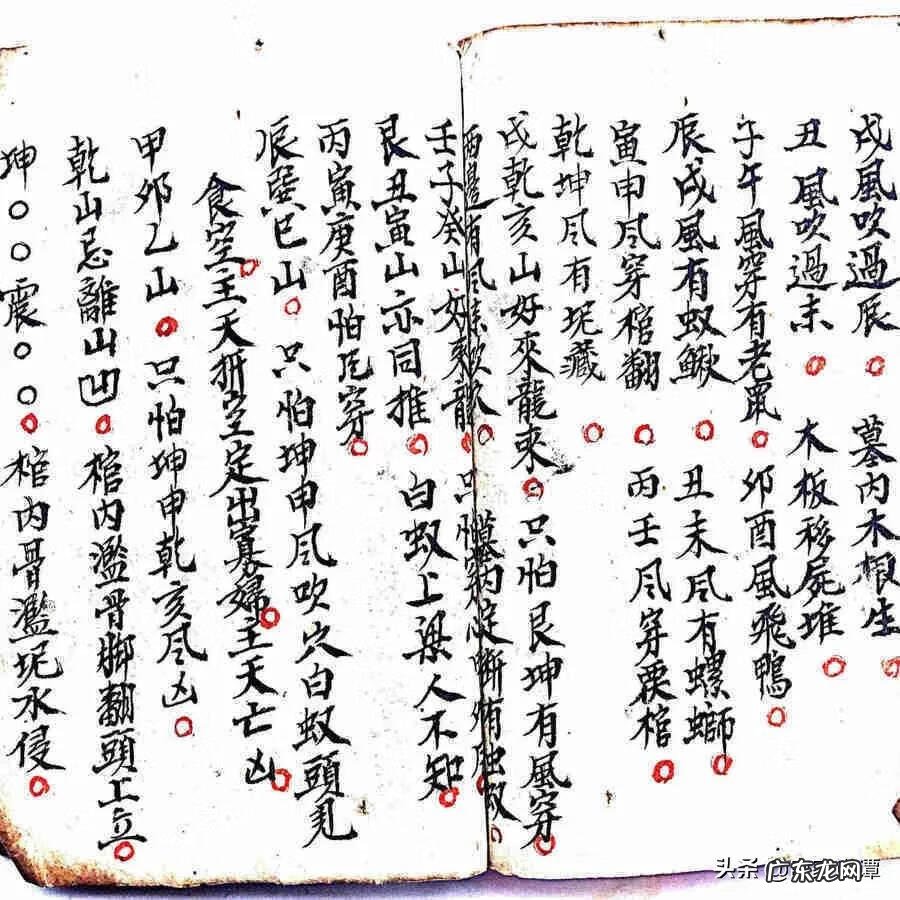 戍風吹過辰 墓内木根生
丑風吹過未 木板移屍堆
子午風穿有老鼠 卯酉風飛鴨
辰戍風有蚁鰍 丑未凨有螺螄
寅申凨穿棺翻 丙壬凨穿棺
乾坤凨有坭藏
戍乾亥山好來龍來 只怕艮坤有風穿
兩邊有凨 只怕
壬子癸山好來龍
艮丑寅山亦同推 白蚁上梁人不知
丙寅庚酉怕凨穿
辰巽巳山 只怕坤申凨吹穴白蚁頭見
食空主天折空定出寡婦主天亡凶
甲卯乙山 只怕坤申乾亥凨凶
乾山忌離山凹 棺内濫骨脚翻頭上立
坤○○震○○ 棺内骨濫坭水侵
头条
广东龙网